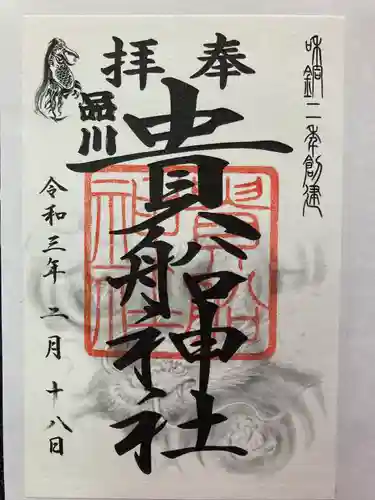 奉拝
和銅二年創建
品川
貴船神社
令和三年二月十八日